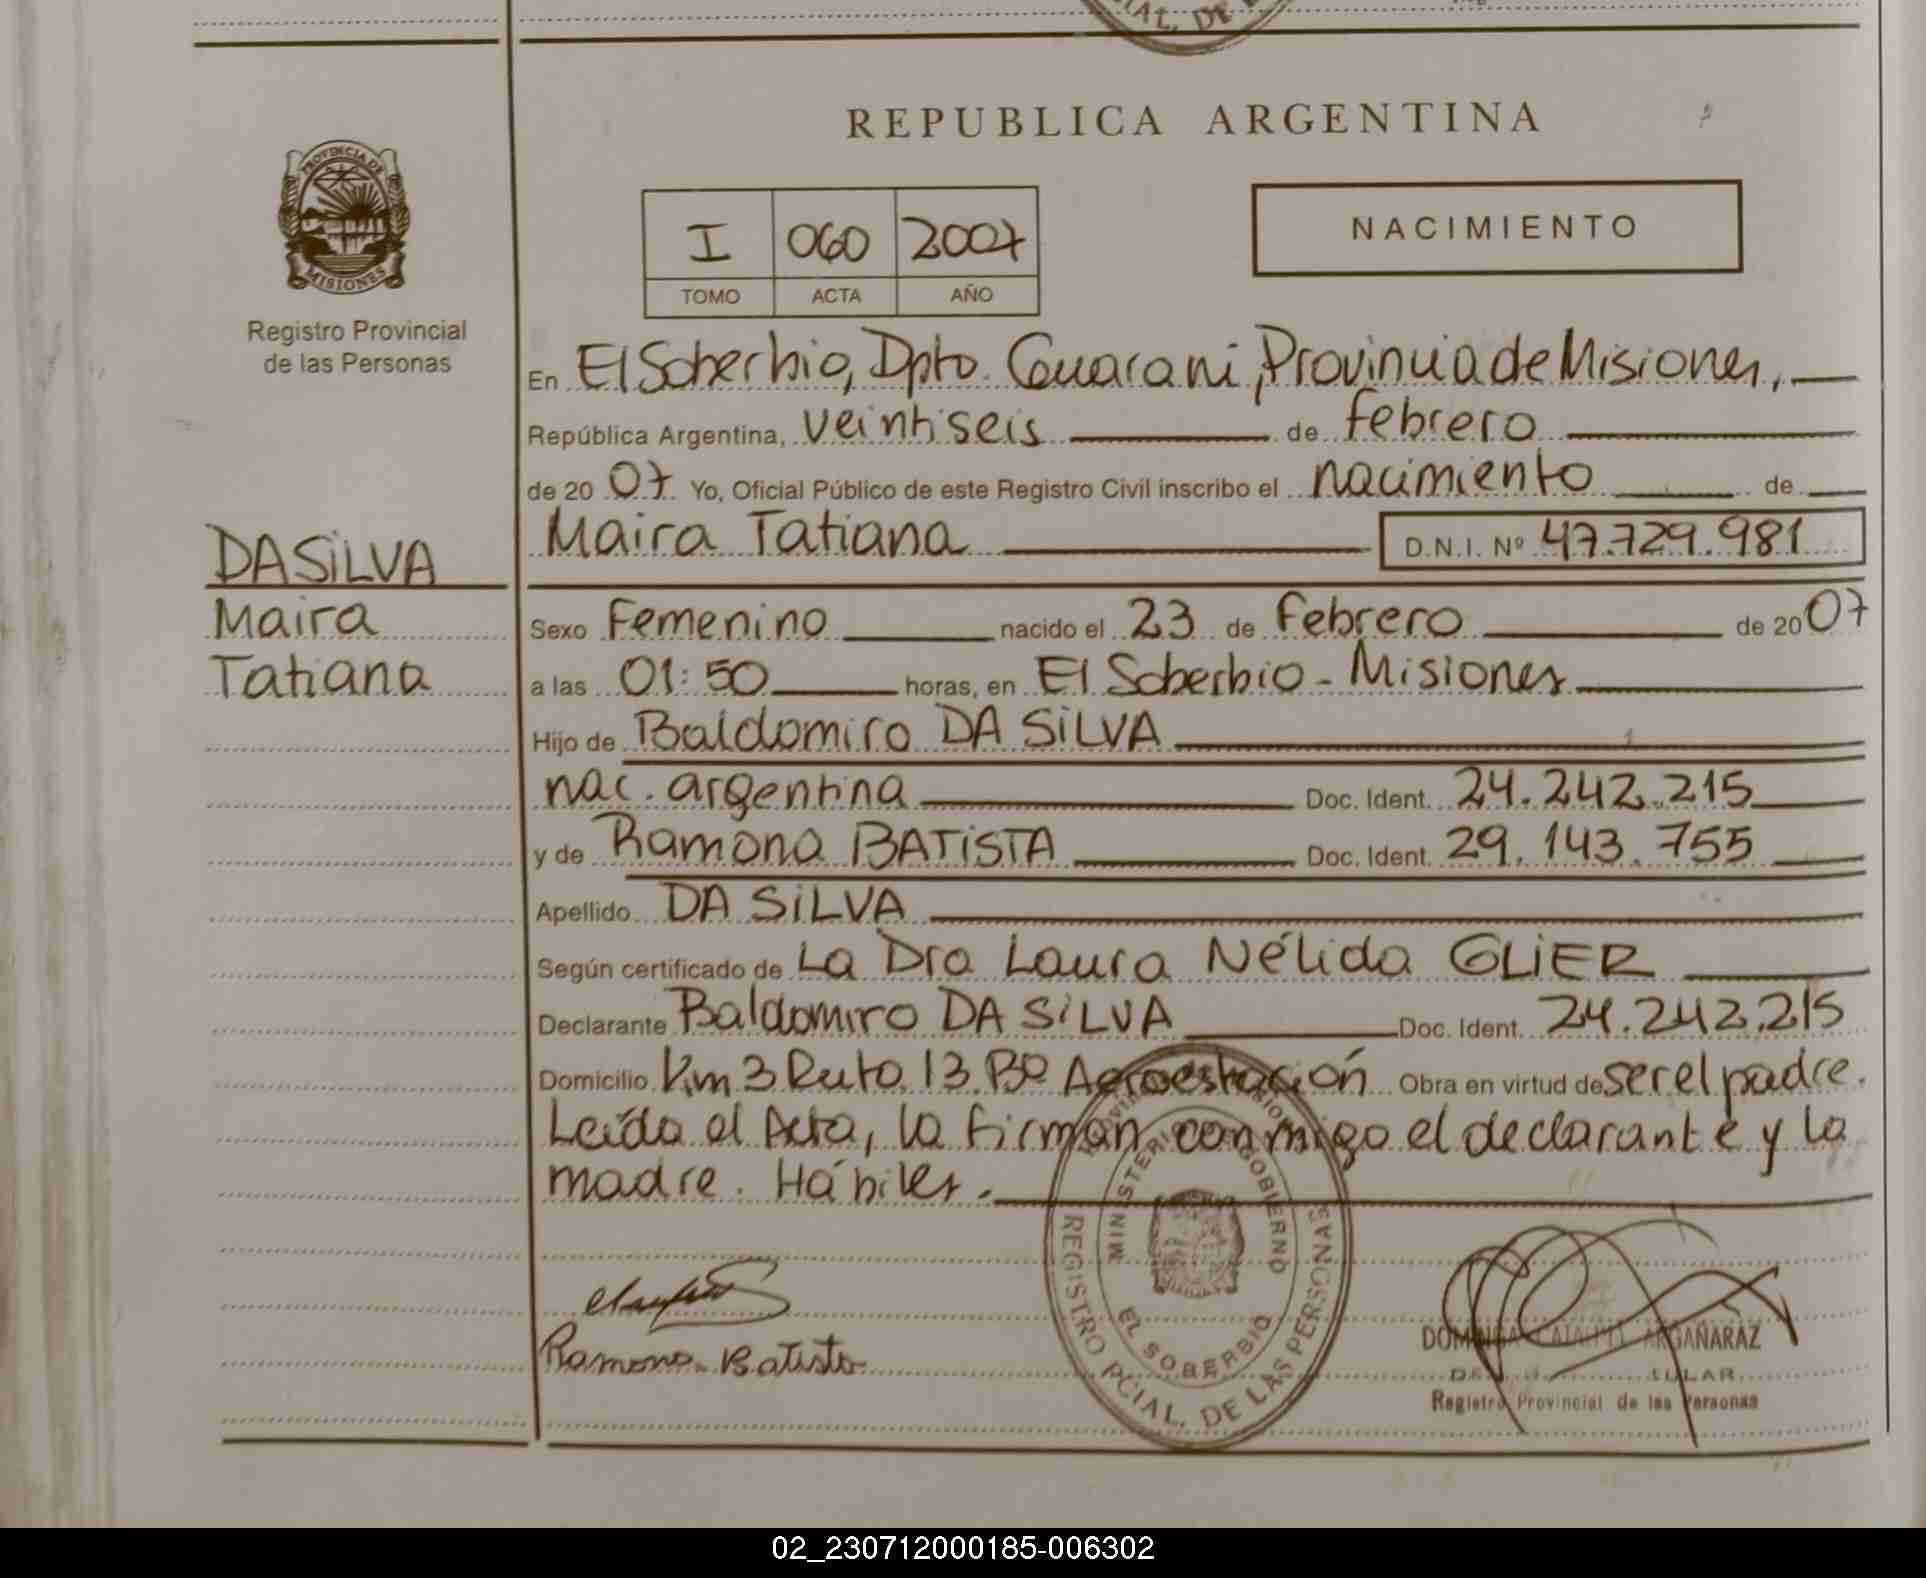 CIAL. DE
REPUBLICA ARGENTINA
PROVINCIA DE
MISIONES
Registro Provincial
de las Personas
I 060 2007
TOMO ACTA AÑO
NACIMIENTO
En El Soberbio, Dpto. Guarani, Provincia de Misiones,
República Argentina, veintiseis de febrero
de 20 07 Yo, Oficial Público de este Registro Civil inscribo el nacimiento de
Maira Tatiana D.N.I. Nº 47.729.981
DA SiLVA
Maira
Tatiana
Sexo Femenino nacido el 23 de Febrero de 20 07
a las 01:50 horas, en El Soberbio - Misiones
Hijo de Baldomiro DA SiLVA
nac. argentina Doc. Ident. 24.242.215
y de Ramona BATiSTA Doc. Ident. 29.143.755
Apellido DA SiLVA
Según certificado de La Dra Laura Nélida GLiER
Declarante Baldomiro DA SiLVA Doc. Ident. 24.242.215
Domicilio Km 3 Ruta 13 Bº Aeroestación Obra en virtud de ser el padre.
Leída el Acta, la firman conmigo el declarante y la
madre. Hábiles.
Ramona Batista
MINISTERIO GOBIERNO
EL SOBERBIO
REGISTRO PCIAL. DE LAS PERSONAS
ARGAÑARAZ
Registro Provincial de las Personas
02_230712000185-006302